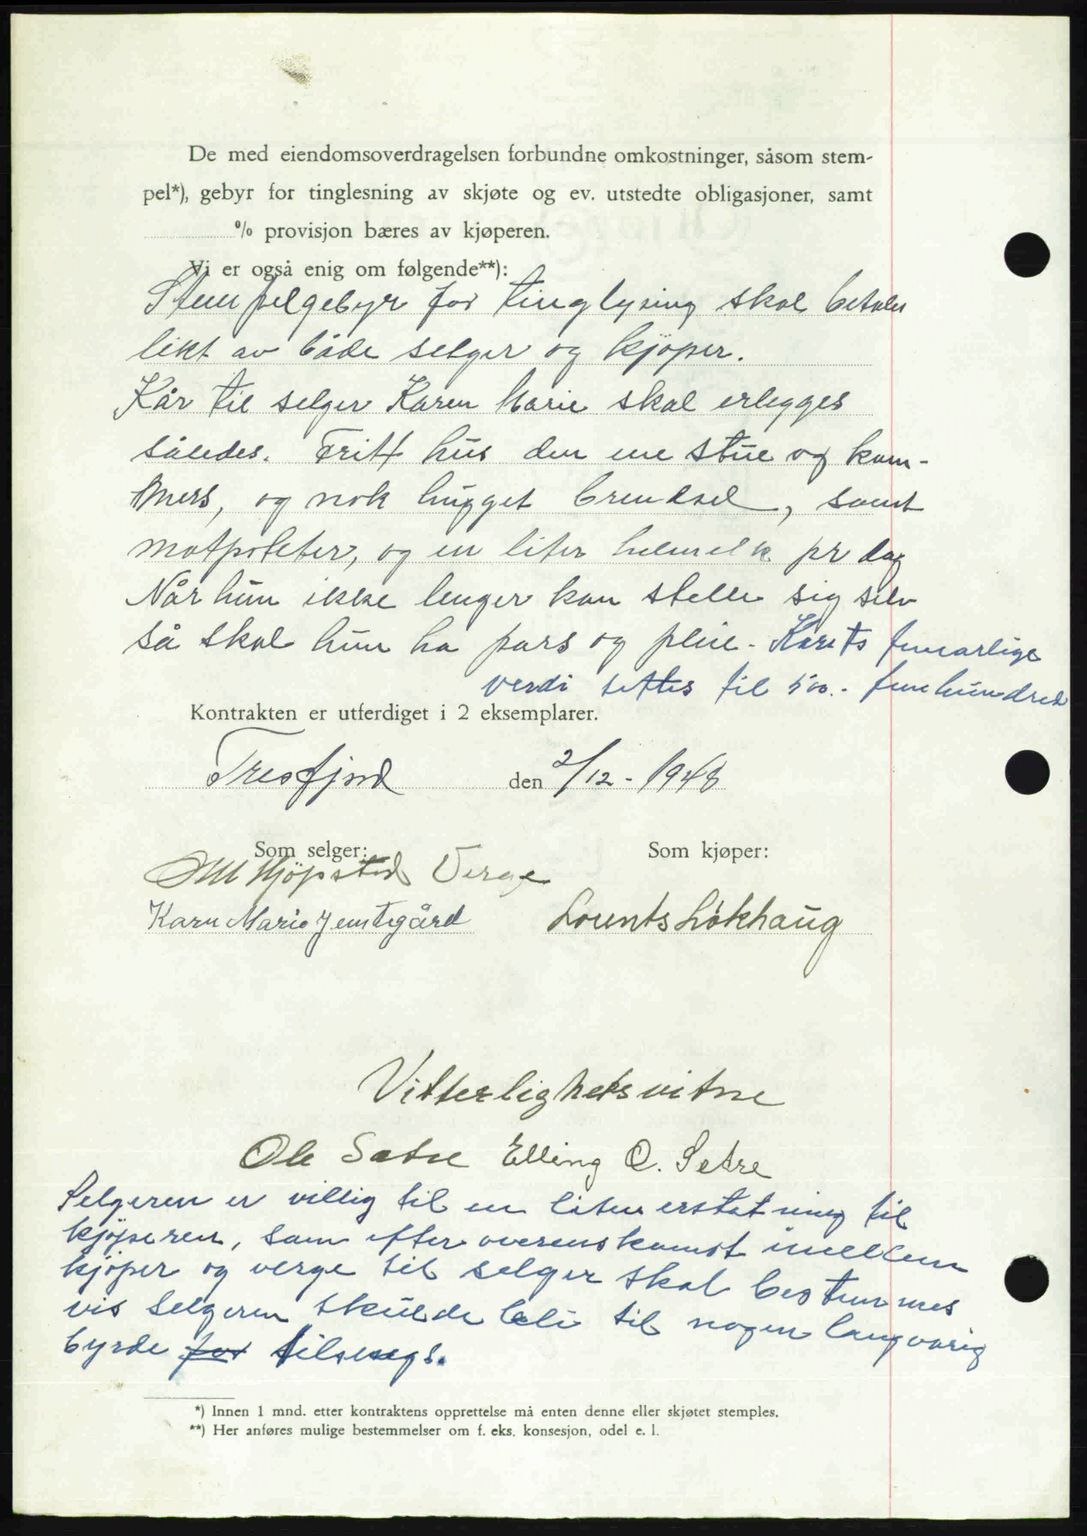 De med eiendomsoverdragelsen forbundne omkostninger, såsom stem-
pel*), gebyr for tinglesning av skjøte og ev. utstedte obligasjoner, samt
% provisjon bæres av kjøperen.
Vi er også enig om følgende**):
Stempelgebyr for tinglysing skal betales
likt av både selger og kjøper.
Kår til selger Karen Marie skal erlegges
således. Fritt hus den ene stue og kam-
mers, og nok hugget brendsel, samt
matpoteter, og en liter helmelk pr dag
Når hun ikke lenger kan stelle sig selv
så skal hun ha pass og pleie. Kårets femårlige
verdi settes til 500.- femhundred
Kontrakten er utferdiget i 2 eksemplarer.
Tresfjord den 2/12 - 1948
Som selger: Som kjøper:
Kjøpstad Verge
Karn Marie Jemtegård Lourents Løkhaug
Vitterlighetsvitne
Ole Sætre Elling O. Setre
Selgeren er villig til en liten erstatning til
kjøperen, som efter overenskomst imellem
kjøper og verge til selger skal bestemmes
vis selgeren skulde bli til nogen langvarig
byrde for tilsengs.
*) Innen 1 mnd. etter kontraktens opprettelse må enten denne eller skjøtet stemples.
**) Her anføres mulige bestemmelser om f. eks. konsesjon, odel e. l.